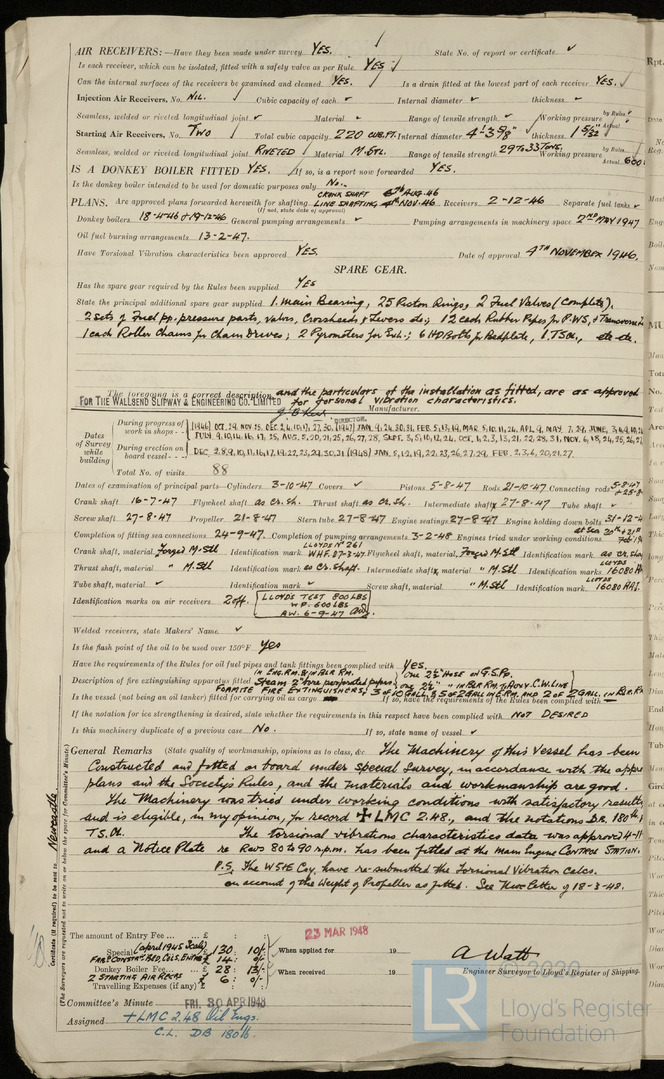 AIR RECEIVERS:—Have they been made under survey YES. State No. of report or certificate ✓
Is each receiver, which can be isolated, fitted with a safety valve as per Rule YES
Can the internal surfaces of the receivers be examined and cleaned YES. Is a drain fitted at the lowest part of each receiver YES.
Injection Air Receivers, No. NIL. Cubic capacity of each ✓ Internal diameter ✓ thickness ✓
Seamless, welded or riveted longitudinal joint ✓ Material ✓ Range of tensile strength ✓ Working pressure by Rules ✓ Actual ✓
Starting Air Receivers, No. TWO Total cubic capacity 220 CUB.FT. Internal diameter 4'-3 5/8" thickness 1 5/32"
Seamless, welded or riveted longitudinal joint RIVETED Material M.STL. Range of tensile strength 29 TO 33 TONS. Working pressure by Rules Actual 600
IS A DONKEY BOILER FITTED YES. If so, is a report now forwarded YES.
Is the donkey boiler intended to be used for domestic purposes only No.
PLANS. Are approved plans forwarded herewith for shafting CRANK SHAFT 6TH AUG.46 LINE SHAFTING 4TH NOV.46 Receivers 2-12-46 Separate fuel tanks ✓
(If not, state date of approval)
Donkey boilers 18-4-46 & 19-12-46 General pumping arrangements ✓ Pumping arrangements in machinery space 2ND MAY 1947
Oil fuel burning arrangements 13-2-47.
Have Torsional Vibration characteristics been approved YES. Date of approval 4TH NOVEMBER 1946.
SPARE GEAR.
Has the spare gear required by the Rules been supplied YES
State the principal additional spare gear supplied 1. Main Bearing, 25 Piston Rings, 2 Fuel Valves (Complete).
2 sets of Fuel pp. pressure parts, valves, Crossheads & Levers etc.; 12 each Rubber Pipes for P.WS, & Transverse
1 each Roller Chains for Chain Drives; 2 Pyrometers for Exh.; 6 HD Bolts for Bedplate, etc etc.
The foregoing is a correct description and the particulars of the installation as fitted, are as approved
FOR THE WALLSEND SLIPWAY & ENGINEERING CO. LIMITED for torsional vibration characteristics.
DIRECTOR. Manufacturer.
Dates of Survey while building
During progress of work in shops - - (1946) OCT. 29, NOV. 15, DEC. 2,4,10,17,27,30. (1947) JAN. 9, 24, 30, 31, FEB. 5, 13, 19, MAR. 5, 10, 11, 26, APL. 9, MAY. 7, 29, JUNE,
JULY 9,10,16, 17, 25, AUG. 5, 20, 21, 25, 26, 27, 28, SEPT. 3, 5, 10, 12, 24, OCT. 1, 2, 3, 13, 21, 22, 28, 31, NOV. 6, 18, 24, 25, 26, 27
During erection on board vessel - - - DEC 2,8,9,10,11,16,17,19,22,23,29,30,31 (1948) JAN. 5,12,19,22,23,26,27,29, FEB. 2,3,4,20,21,27.
Total No. of visits 88
Dates of examination of principal parts—Cylinders 3-10-47 Covers ✓ Pistons 5-8-47 Rods 21-10-47 Connecting rods 5-8-47 + 25-8
Crank shaft 16-7-47 Flywheel shaft as cr. sh. Thrust shaft as cr. sh. Intermediate shafts 27-8-47 Tube shaft ✓
Screw shaft 27-8-47 Propeller 21-8-47 Stern tube 27-8-47 Engine seatings 27-8-47 Engine holding down bolts 31-12-4
Completion of fitting sea connections 24-9-47. Completion of pumping arrangements 3-2-48 Engines tried under working conditions at Sea 20th & 21st Feb. 19
Crank shaft, material Forged M.Stl Identification mark LLOYDS No 261 WHF. 27-3-47 Flywheel shaft, material Forged M.Stl Identification mark as cr. sh
Thrust shaft, material " M.Stl Identification mark as Cr. shaft. Intermediate shafts, material " M.Stl Identification marks LLOYDS 16080 HA
Tube shaft, material ✓ Identification mark ✓ Screw shaft, material " M.Stl Identification mark LLOYDS 16080 HAI.
Identification marks on air receivers 2 off. LLOYD'S TEST 800 LBS
W.P. 600 LBS
A.W. 6-9-47
Welded receivers, state Makers' Name ✓
Is the flash point of the oil to be used over 150°F. Yes
Have the requirements of the Rules for oil fuel pipes and tank fittings been complied with YES.
IN ENG.RM. & IN BLR RM. One 2½" HOSE ON G.S.Pp.
Description of fire extinguishing apparatus fitted Steam 2" bore perforated pipes; one 2½" " IN BLR RM. C.W. LINE
FOAMITE FIRE EXTINGUISHERS, 3 OF 10 GALL. & 5 OF 2 GALL IN E.RM. AND 2 OF 2 GALL. IN BLR. RM
Is the vessel (not being an oil tanker) fitted for carrying oil as cargo If so, have the requirements of the Rules been complied with —
If the notation for ice strengthening is desired, state whether the requirements in this respect have been complied with NOT DESIRED
Is this machinery duplicate of a previous case No. If so, state name of vessel ✓
General Remarks (State quality of workmanship, opinions as to class, &c. The Machinery of this Vessel has been
Constructed and fitted on board under special Survey, in accordance with the appr
plans and the Society's Rules, and the materials and workmanship are good.
The Machinery was tried under working conditions with satisfactory results
and is eligible, in my opinion, for record ✠LMC 2.48., and the notations D.B. 180 lb,
TS. OL. The torsional vibrations characteristics data was approved 4-11
and a Notice Plate re Revs 80 to 90 r.p.m. has been fitted at the Main Engine CONTROL STATION.
P.S. The WSE Coy, have re-submitted the Torsional Vibration Calcs.
on account of the Weight of Propeller as fitted. See Nwc Letter of 18-3-48.
Certificate (if required) to be sent to Newcastle
(The Surveyors are requested not to write on or below the space for Committee's Minute.)
The amount of Entry Fee ... £ : :
Special (April 1945 Scale) £ 130 : 10/-
£ 14 : 0/-
Donkey Boiler Fee... £ 28 : 13/-
2 STARTING AIR RECRS £ 6 : 0/-
Travelling Expenses (if any) £
23 MAR 1948
When applied for 19
When received 19
A Watt
Engineer Surveyor to Lloyd's Register of Shipping.
Committee's Minute FRI. 30 APR 1948
Assigned +LMC 2.48 Oil Engs.
C.L. DB 180 lb.
2020
LR Lloyd's Register
Foundation